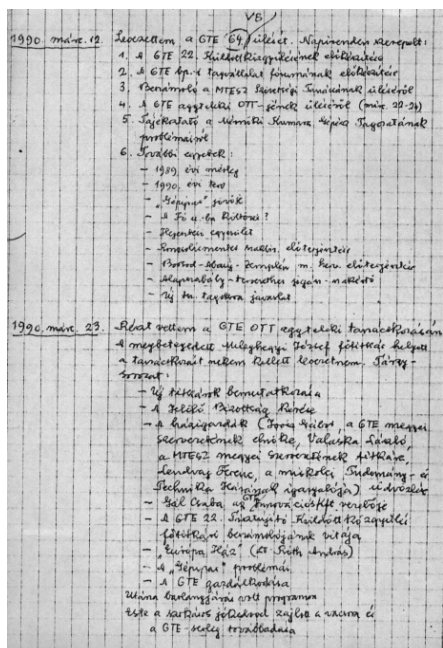 VB
1990. márc. 12. Levezettem a GTE 64 ülését. Napirenden szerepelt:
1. A GTE 22. Küldöttközgyűlésének előkészítése
2. A GTE bp.-i tagvállalat fórumának előkészítése
3. Beszámoló a MTESZ Szövetségi Tanácsának üléséről
4. A GTE aggteleki OTT-jének üléséről (márc. 22-24)
5. Tájékoztató a Mérnöki Kamara Gépész Tagozatának
problémáiról
6. További egyebek:
- 1989. évi mérleg
- 1990. évi terv
- „Gépipar" jövője
- A Fő u.-ba költözés?
- Hegesztési egyesület
- előterjesztés
- Borsod-Abaúj-Zemplén m. szerv. előterjesztése
- Alapszabály-tervezethez
- Új javaslat
1990. márc. 23. Részt vettem a GTE OTT aggteleki tanácskozásán
A megbetegedett József főtitkár helyett
a tanácskozást nekem kellett levezetnem. Tárgy-
sorozat:
- Új titkárok bemutatkozása
- A Jelölő Bizottság kérése
- A házigazdák (Gábor, a GTE megyei
szervezetének elnöke, Valaska László,
a MTESZ megyei szervezetének titkára,
Lendvay Ferenc, a miskolci Tudomány- és
Technika Házának igazgatója) üdvözlése
- Gál Csaba, az Innovációs Kft vezetője
- A GTE 22. Tisztújító Küldöttközgyűlés
főtitkári beszámolójának vitája
- "Európa Ház" (dr. Róth András)
- A „Gépipar" problémái
- A GTE gazdálkodása
Utána barlangjárás volt programon
Este a jókedvvel zajlott a vacsora és
a GTE-serleg továbbadása